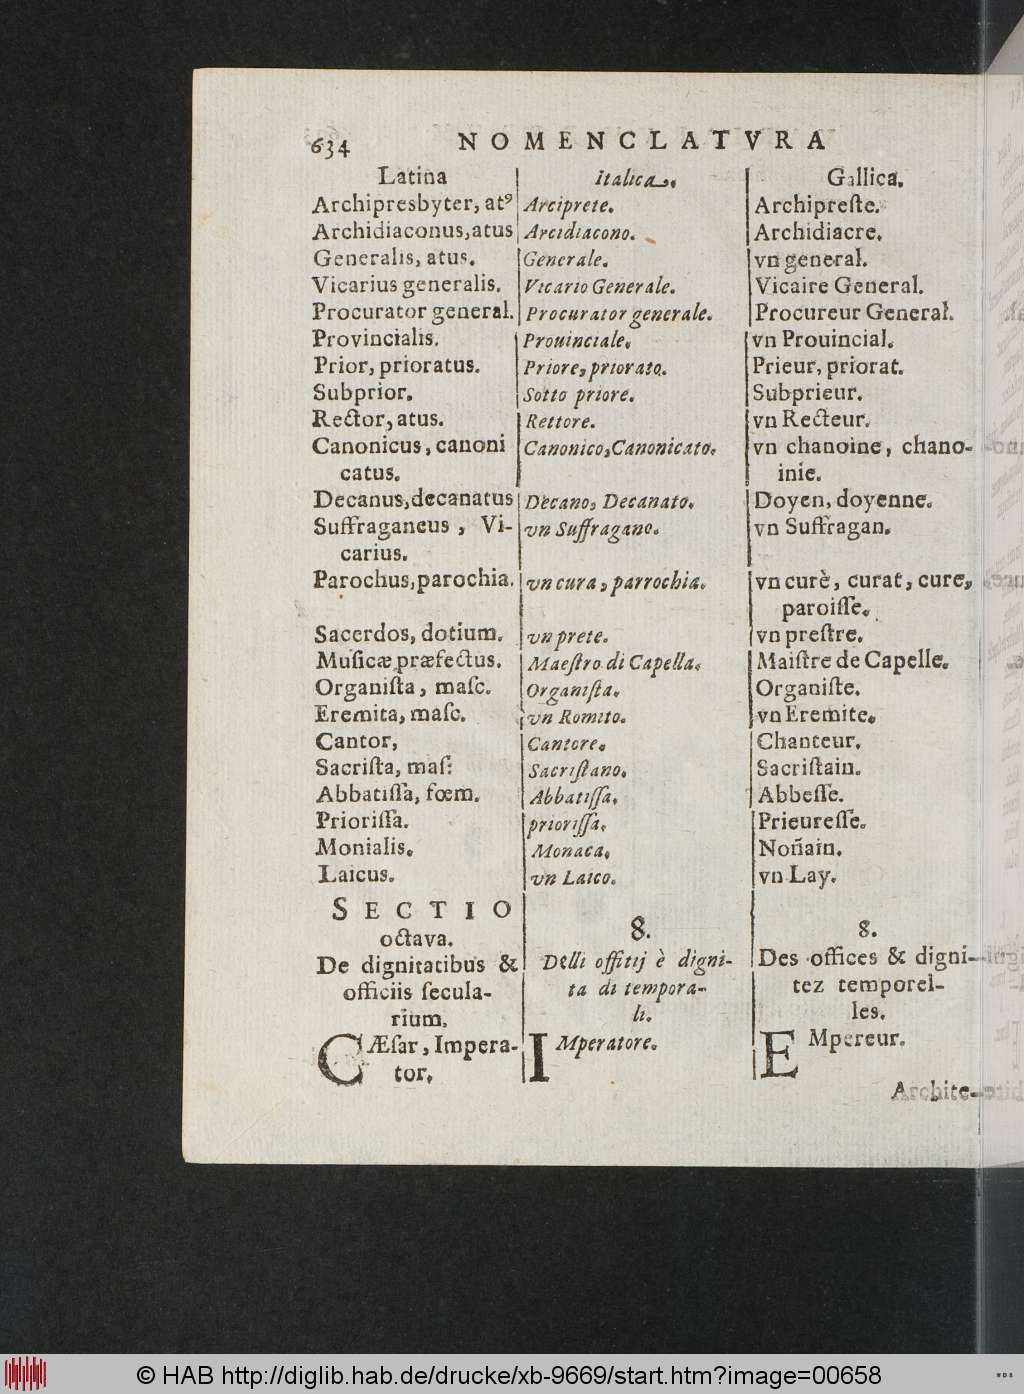 634 NOMENCLATVRA
Latina Italica. Gallica.
Archipresbyter, atꝰ Arciprete. Archipreſte.
Archidiaconus, atus Arcidiacono. Archidiacre.
Generalis, atus. Generale. vn general.
Vicarius generalis. Vicario Generale. Vicaire General.
Procurator general. Procurator generale. Procureur General.
Provincialis. Prouinciale. vn Prouincial.
Prior, prioratus. Priore, priorato. Prieur, priorat.
Subprior. Sotto priore. Subprieur.
Rector, atus. Rettore. vn Recteur.
Canonicus, canoni Canonico, Canonicato. vn chanoine, chano-
catus. inie.
Decanus, decanatus Decano, Decanato. Doyen, doyenne.
Suffraganeus, Vi- vn Suffragano. vn Suffragan.
carius.
Parochus, parochia. vn cura, parrochia. vn curè, curat, cure,
paroiſſe.
Sacerdos, dotium. vn prete. vn preſtre.
Muſicæ præfectus. Maeſtro di Capella. Maiſtre de Capelle.
Organiſta, maſc. Organiſta. Organiſte.
Eremita, maſc. vn Romito. vn Eremite.
Cantor, Cantore. Chanteur.
Sacriſta, maſ: Sacriſtano. Sacriſtain.
Abbatiſſa, fœm. Abbatiſſa. Abbeſſe.
Prioriſſa. prioriſſa. Prieureſſe.
Monialis. Monaca. Noñain.
Laicus. vn Laico. vn Lay.
SECTIO
octava. 8. 8.
De dignitatibus & Delli offitij è digni- Des offices & digni-
officiis ſecula- ta di tempora- tez temporel-
rium. li. les.
CÆſar, Impera- IMperatore. EMpereur.
tor.
Archite-
© HAB http://diglib.hab.de/drucke/xb-9669/start.htm?image=00658